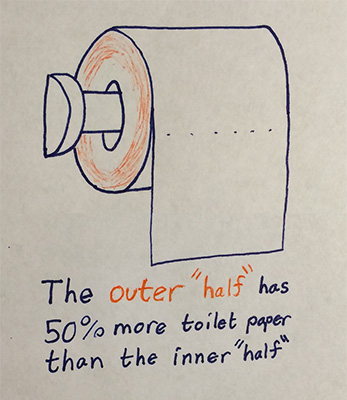 The outer "half" has
50% more toilet paper
than the inner "half"